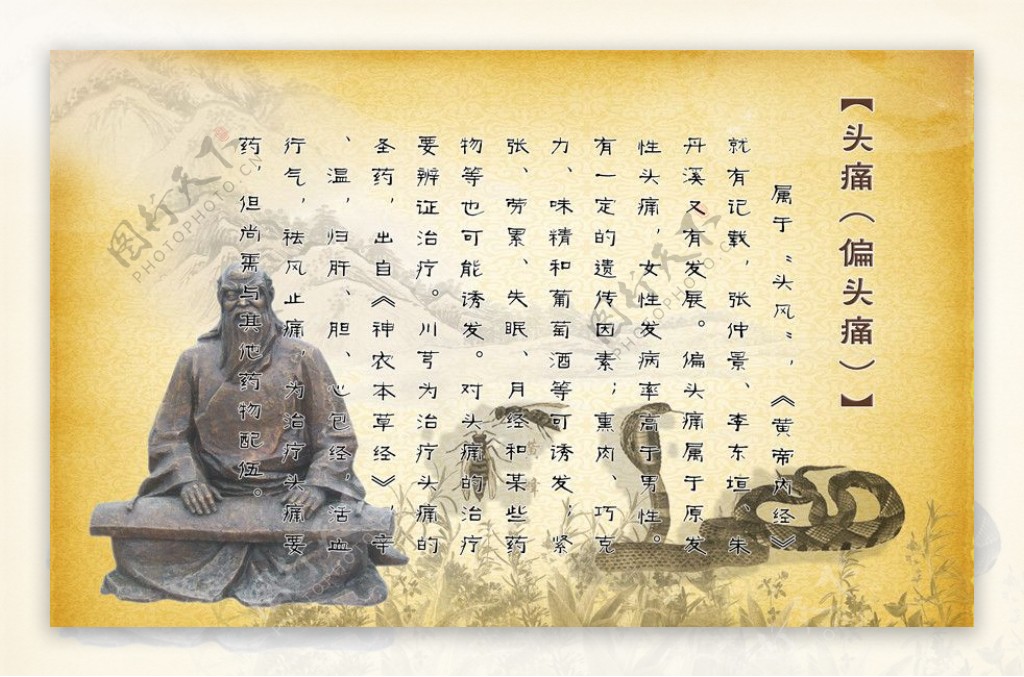 【头痛（偏头痛）】
属于“头风”，《黄帝内经》
就有记载，张仲景、李东垣、朱
丹溪又有发展。偏头痛属于原发
性头痛，女性发病率高于男性。
有一定的遗传因素；熏肉、巧克
力、味精和葡萄酒等可诱发；紧
张、劳累、失眠、月经和某些药
物等也可能诱发。对头痛的治疗
要辨证治疗。川芎为治疗头痛的
圣药，出自《神农本草经》，辛
、温，归肝、胆、心包经，活血
行气，祛风止痛，为治疗头痛要
药，但尚需与其他药物配伍。
图行天下
PHOTOPHOTO.CN
图行天下
PHOTOPHOTO.CN